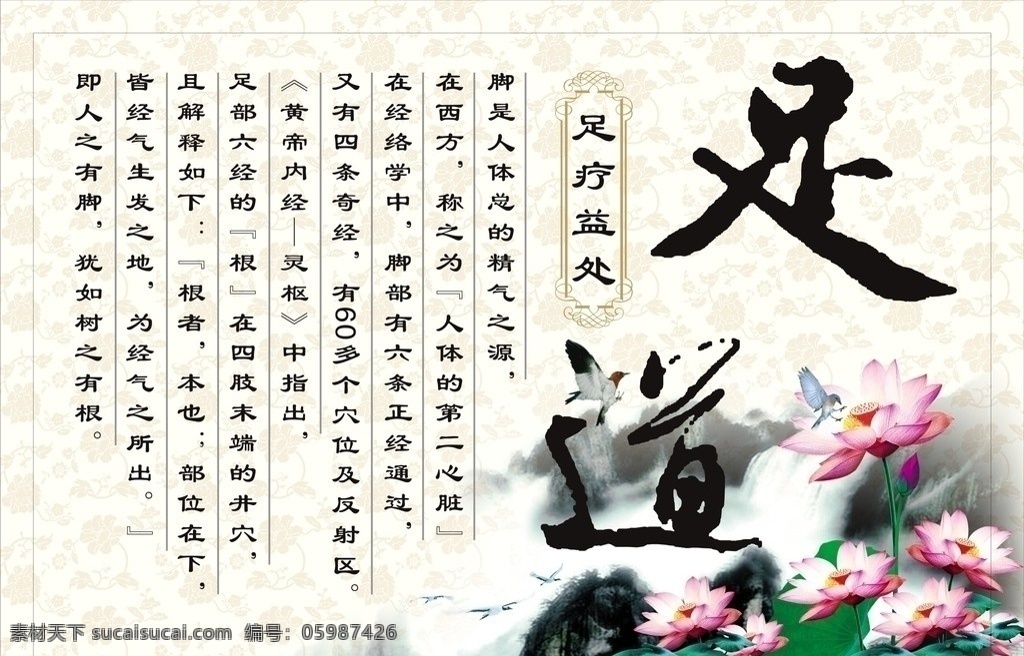 足道
足疗益处
脚是人体总的精气之源，
在西方，称之为『人体的第二心脏』
在经络学中，脚部有六条正经通过，
又有四条奇经，有60多个穴位及反射区。
《黄帝内经—灵枢》中指出，
足部六经的『根』在四肢末端的井穴，
且解释如下：『根者，本也；部位在下，
皆经气生发之地，为经气之所出。』
即人之有脚，犹如树之有根。
素材天下 sucaisucai.com 编号：05987426